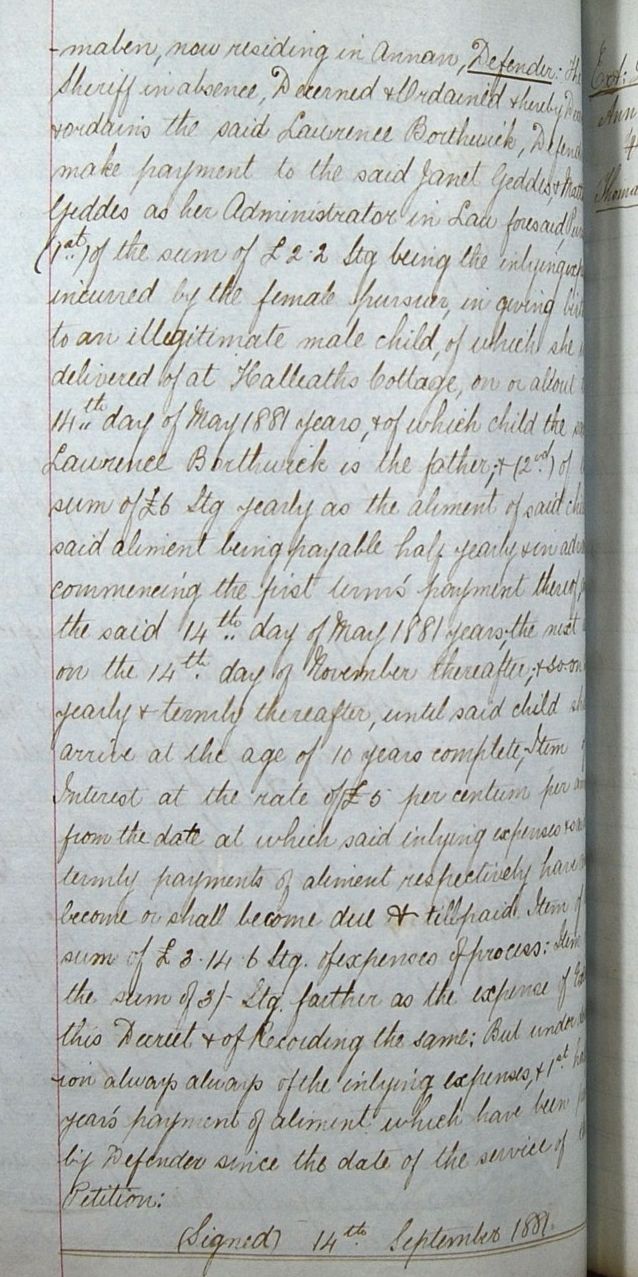 -maben, now residing in Annan, Defender: The
Sheriff in absence, Decerned & Ordained & hereby
& ordains the said Lawrence Borthwick,
make payment to the said Janet Geddes &
Geddes as her Administrator in Law foresaid
(1st.) of the sum of £2.2 Stg being the inlying
incurred by the female pursuer, in giving
to an illegitimate male child, of which she
delivered of at Halleaths Cottage, on or about
14th day of May 1881 years, & of which child the
Lawrence Borthwick is the father; & (2nd.) of
sum of £6 Stg yearly as the aliment of said
said aliment being payable half yearly & in
commencing the first term's payment thereof
the said 14th day of May 1881 years, the next
on the 14th day of November thereafter, & so on
yearly & termly thereafter, until said child
arrive at the age of 10 years complete, Item
Interest at the rate of £5 per centum per
from the date at which said inlying expenses &
termly payments of aliment respectively have
become or shall become due & till paid. Item of
sum of £3.14.6 Stg. of expenses of process: Item
the sum of 3/- Stg. farther as the expense of
this Decreet & of Recording the same: But under
-ion always always of the inlying expenses, & 1st
year's payment of aliment which have been
by Defender since the date of the service of
Petition:
(Signed) 14th September 1881.
Ext:
Ann